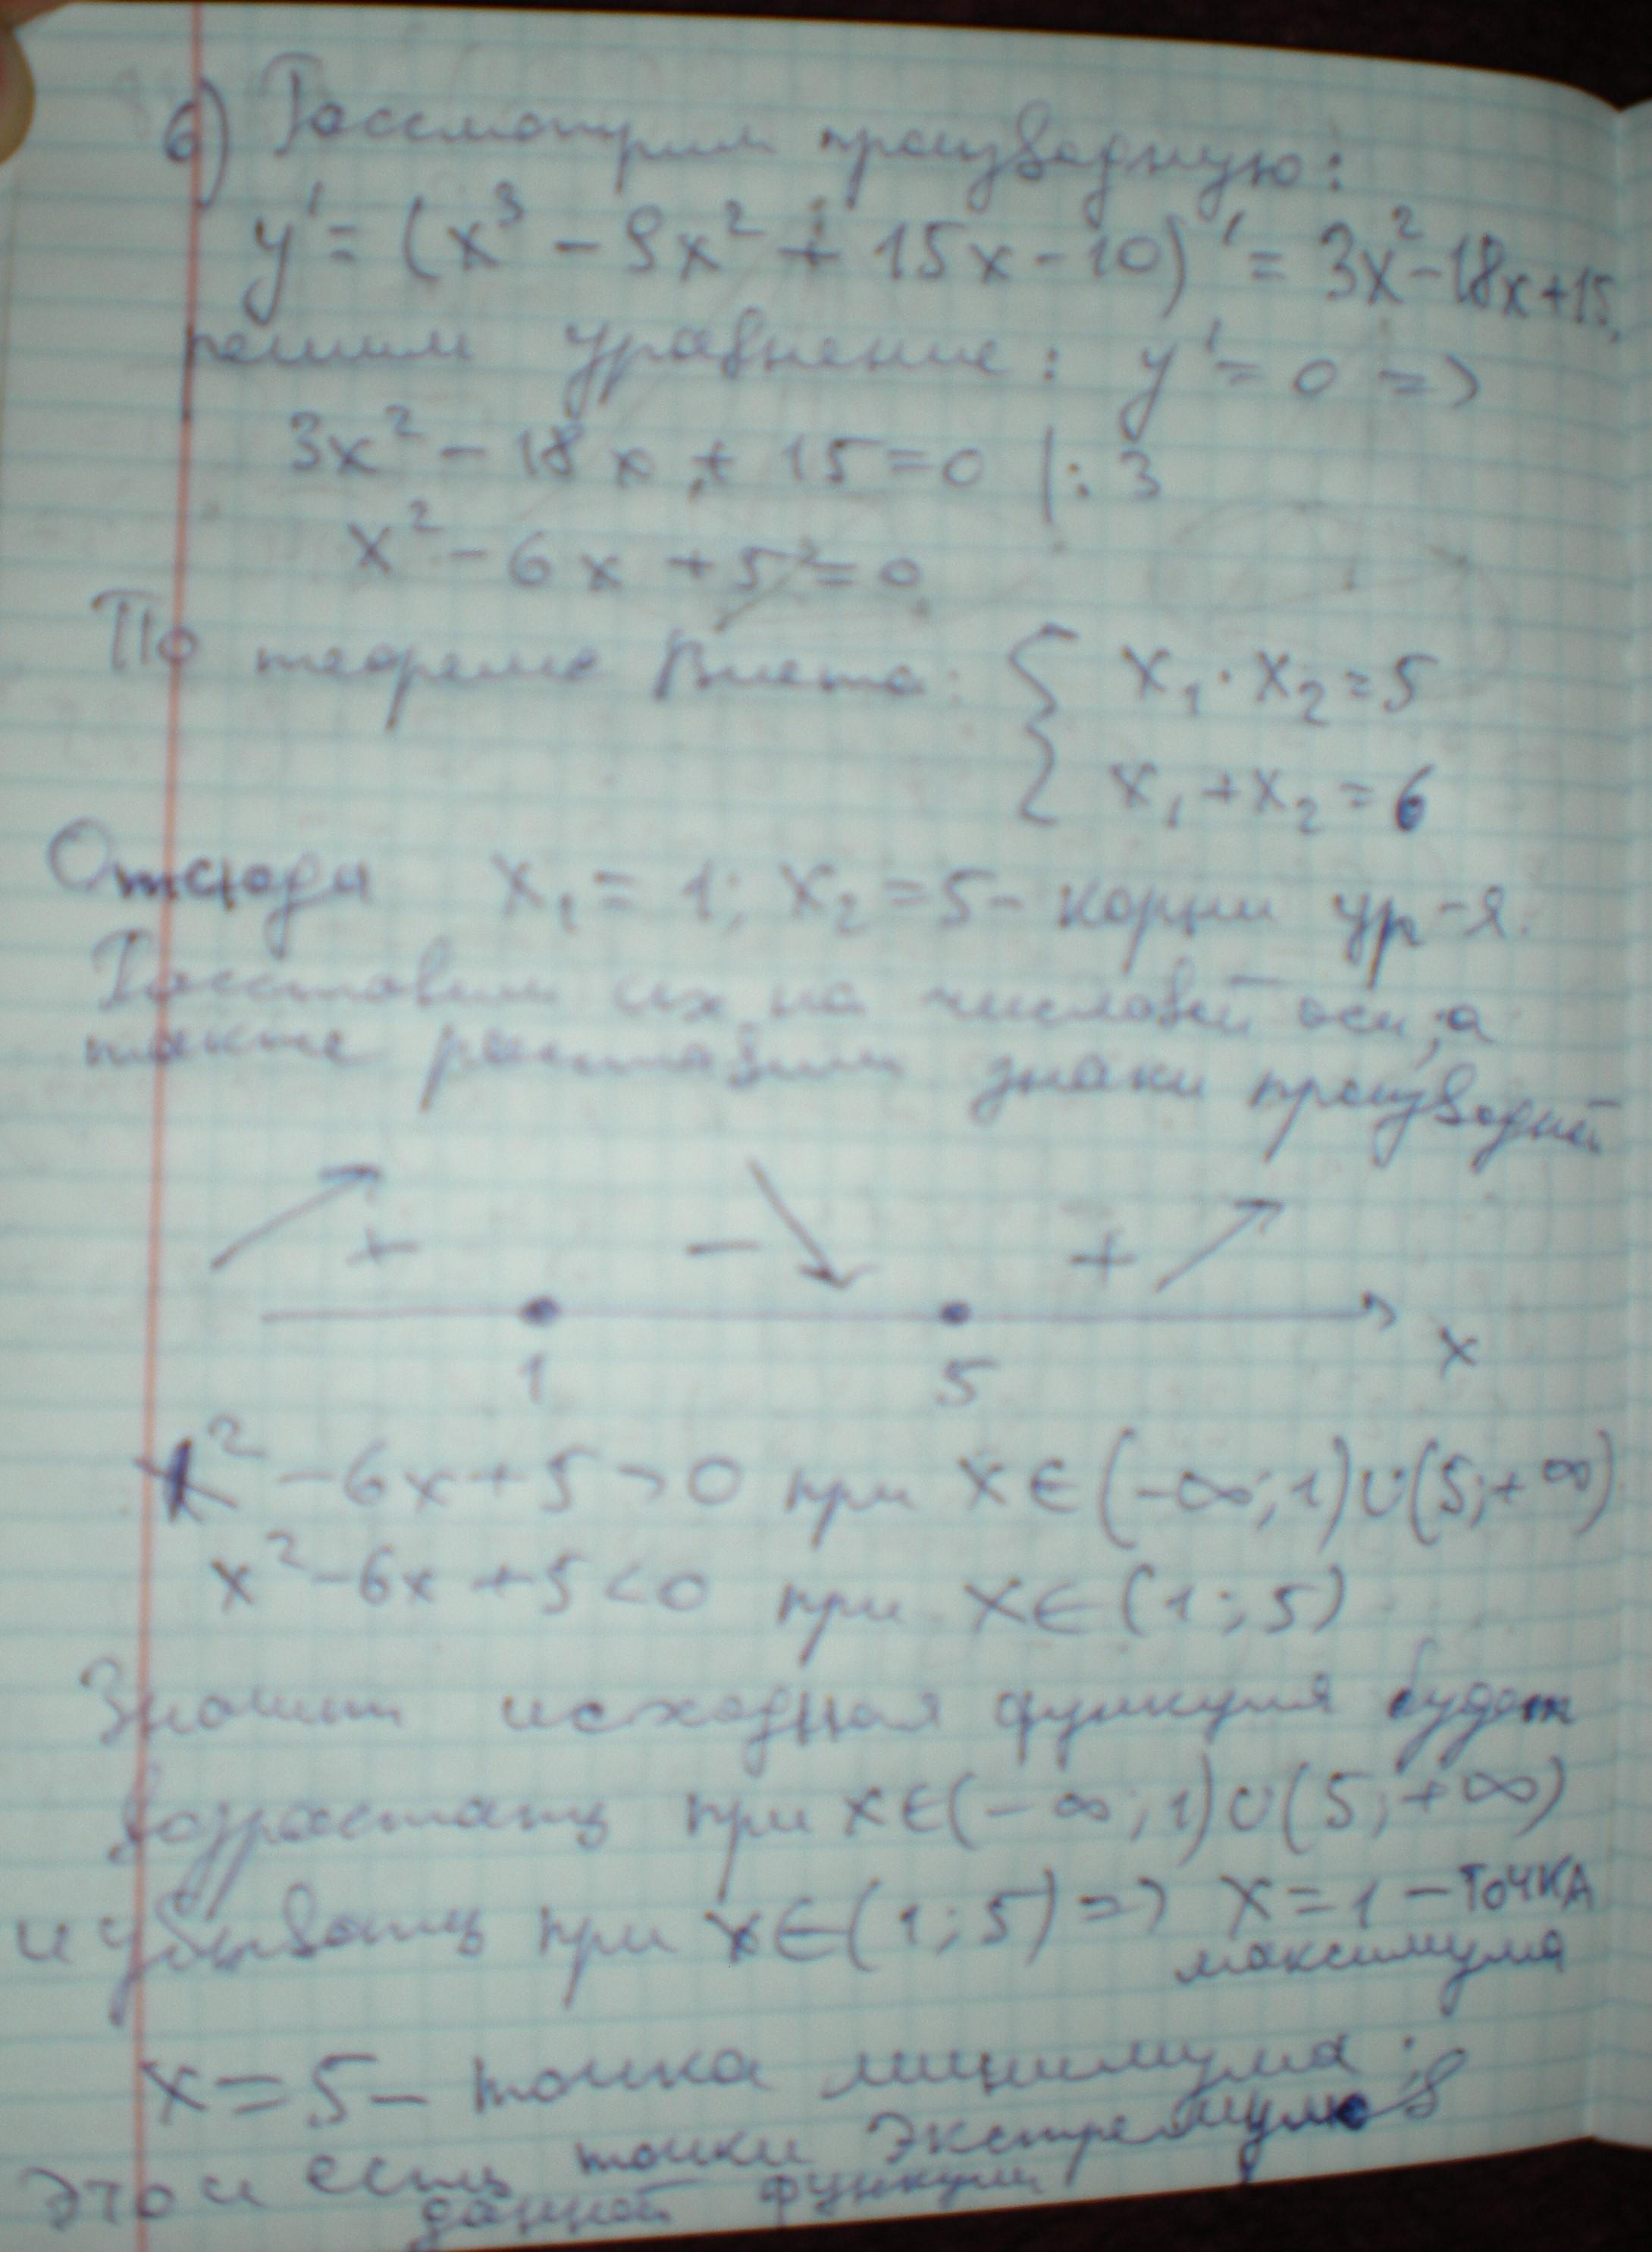 6) Рассмотрим производную:
y' = (x³ - 9x² + 15x - 10)' = 3x² - 18x + 15,
решим уравнение: y' = 0 =>
3x² - 18x + 15 = 0 |: 3
x² - 6x + 5 = 0
По теореме Виета: { x₁ · x₂ = 5
x₁ + x₂ = 6
Отсюда x₁ = 1; x₂ = 5 - корни ур-я.
Расставим их на числовой оси, а
также расставим знаки производной
+ - +
1 5 x
x² - 6x + 5 > 0 при x ∈ (-∞; 1) ∪ (5; +∞)
x² - 6x + 5 < 0 при x ∈ (1; 5)
Значит исходная функция будет
возрастать при x ∈ (-∞; 1) ∪ (5; +∞)
и убывать при x ∈ (1; 5) => x = 1 - точка
максимума
x = 5 - точка минимума.
Это и есть точки экстремума
данной функции